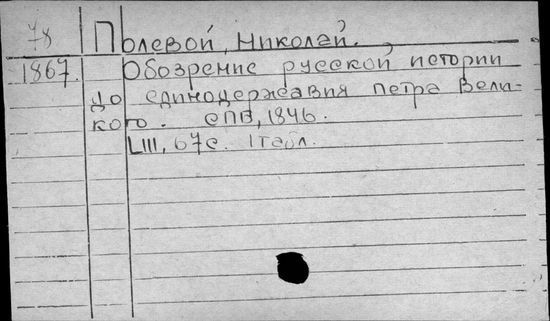 78 Полевой, Николай.
1867. Обозрение русской истории
до единодержавия петра Вели-
кого. СПВ, 1846.
LIII, 67с. 1 табл.